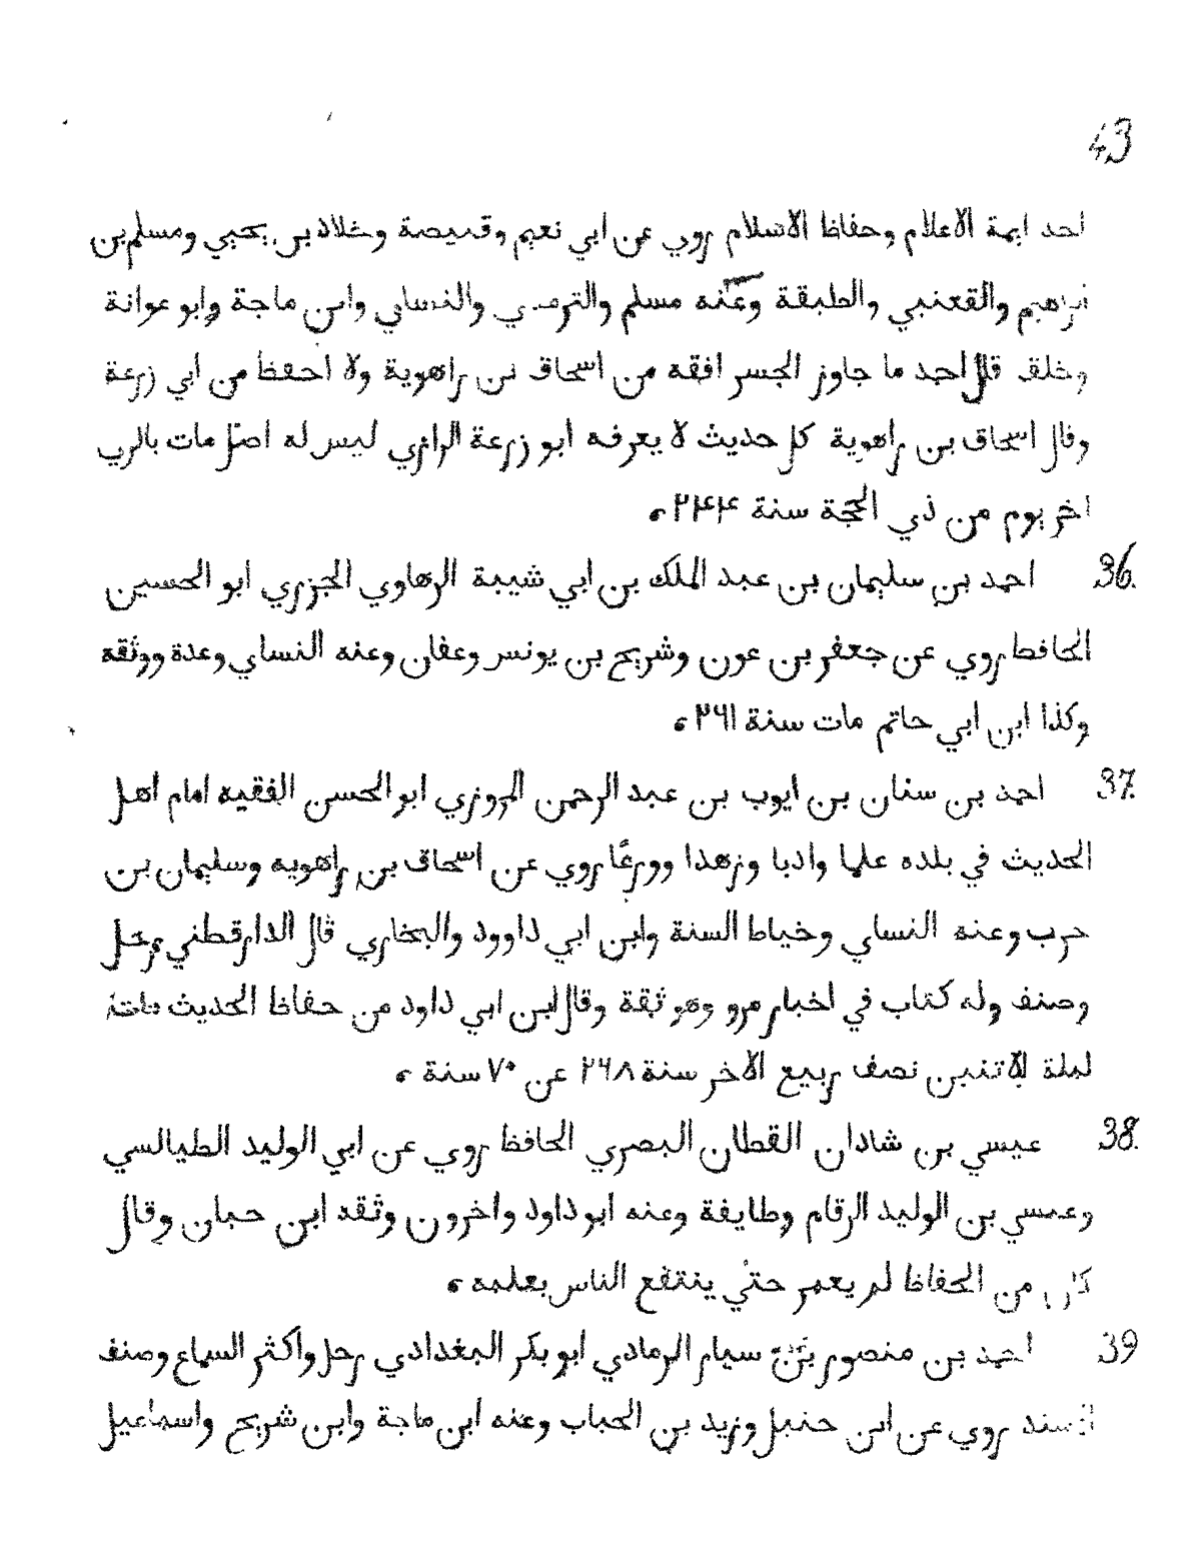 43
احد ايمة الاعلام وحفاظ الاسلام روي عن ابي نعيم وقبيصة وخلاد بن يحيي ومسلم بن
ابراهيم والقعنبي والطبقة وعنه مسلم والترمدي والنساي وابن ماجة وابو عوانة
وخلق قال احمد ما جاوز الجسر افقه من اسحاق بن راهوية ولا احفظ من ابي زرعة
وقال اسحاق بن راهوية كل حديث لا يعرفه ابو زرعة الرازي ليس له اصل مات بالري
اخر يوم من ذي الحجة سنة ٢۴۴
36. احمد بن سليمان بن عبد الملك بن ابي شيبة الرهاوي الجزري ابو الحسين
الحافط روي عن جعفر بن عون وشريح بن يونس وعفان وعنه النساي وعدة ووثقه
وكذا ابن ابي حاتم مات سنة ٢٦١
37. احمد بن سنان بن ايوب بن عبد الرحمن المروزي ابو الحسن الفقيه امام اهل
الحديث في بلده علما وادبا وزهدا وورعًا روي عن اسحاق بن راهويه وسليمان بن
حرب وعنه النساي وخياط السنة وابن ابي داوود والبخاري قال الدارقطني رحل
وصنف وله كتاب في اخبار مرو وهو ثقة وقال ابن ابي داود من حفاظ الحديث مات
ليلة الاتنين نصف ربيع الاخر سنة ٢٦٨ عن ٧٠ سنة
38. عيسي بن شادان القطان البصري الحافظ روي عن ابي الوليد الطيالسي
وعيسي بن الوليد الرقام وطايفة وعنه ابو داود واخرون وثقه ابن حبان وقال
كان من الحفاظ لم يعمر حتي ينتفع الناس بعلمه
39 احمد بن منصور بن سيار الرمادي ابو بكر البغدادي رحل واكثر السماع وصنف
المسند روي عن ابن حنبل وزيد بن الحباب وعنه ابن ماجة وابن شريح واسماعيل